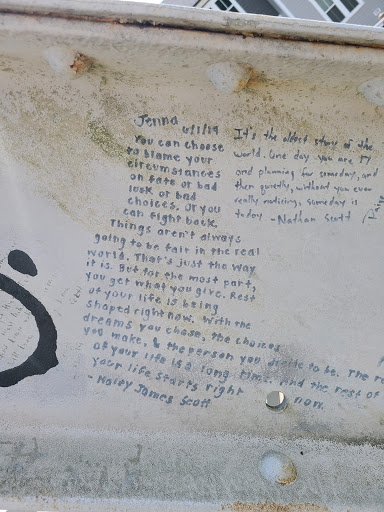 Jenna
6/1/19
You can choose
to blame your
circumstances
on fate or bad
luck or bad
choices. Or you
can fight back.
Things aren't always
going to be fair in the real
world. That's just the way
it is. But for the most part,
you get what you give. Rest
of your life is being
shaped right now. With the
dreams you chase, the choices
you make, & the person you decide to be. The re
of your life is a long time. And the rest of
your life starts right now.
- Haley James Scott
It's the oldest story in the
world. One day you are 17
and planning for someday, and
then quietly, without you ever
really noticing, someday is
today - Nathan Scott